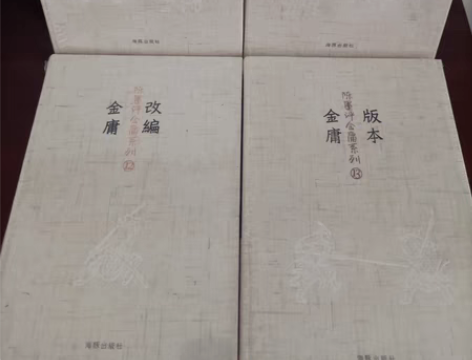 海豚出版社
海豚出版社
改編
金庸
陈墨评金庸系列⑫
海豚出版社
版本
金庸
陈墨评金庸系列⑬
海豚出版社